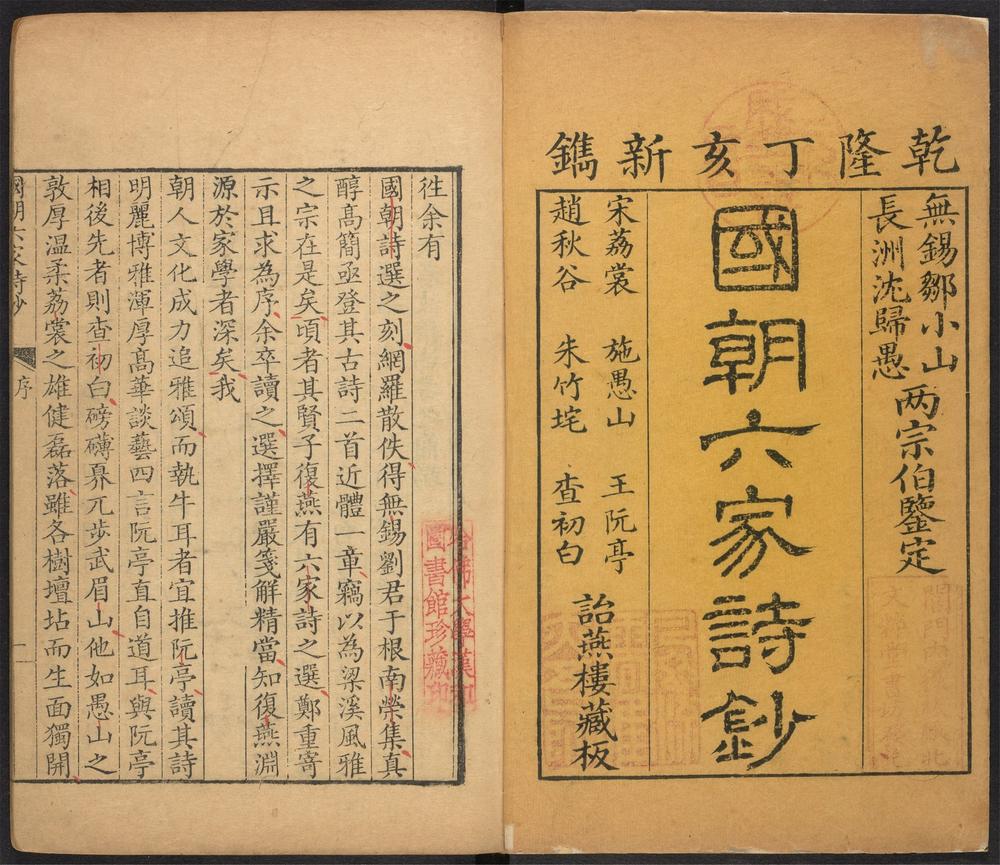 乾隆丁亥新鐫
無錫鄒小山
長洲沈歸愚
两宗伯鑒定
國朝六家詩鈔
宋荔裳 施愚山 王阮亭
趙秋谷 朱竹垞 查初白
詒燕樓藏板
徃余有
國朝詩選之刻網羅散佚得無錫劉君于根南榮集真
醇高簡亟登其古詩二首近體一章竊以為梁溪風雅
之宗在是矣頃者其賢子復燕有六家詩之選鄭重寄
示且求為序余卒讀之選擇謹嚴箋解精當知復燕淵
源於家學者深矣我
朝人文化成力追雅頌而執牛耳者宜推阮亭讀其詩
明麗博雅渾厚高華談藝四言阮亭直自道耳與阮亭
相後先者則查初白磅礴昇兀步武眉山他如愚山之
敦厚溫柔荔裳之雄健磊落雖各樹壇坫而生面獨開
國朝六家詩鈔
序
一
哈佛大學漢和
圖書館珍藏印